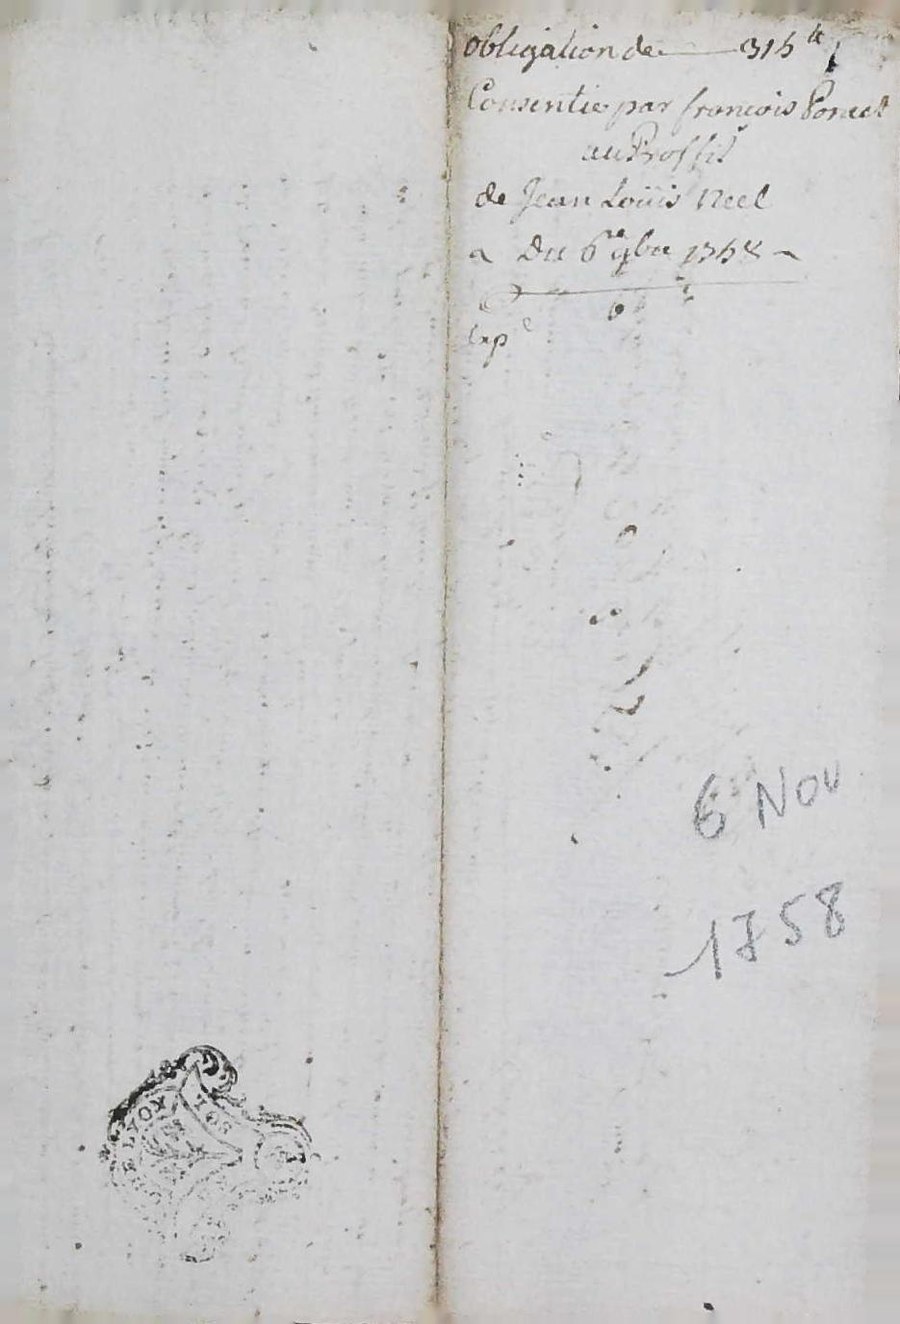 obligation de 315 ₶
Consentie par francois Poncet
au Proffit
de Jean Loüis Neel
Du 6e 9bre 1758
Exp e
6 Nov
1758
LYON
SOL